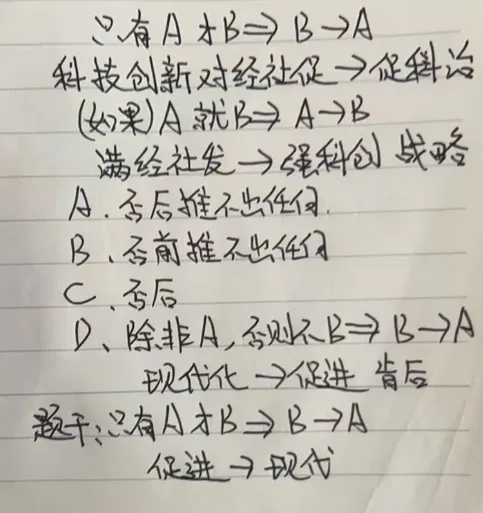 只有A才B⇒B→A
科技创新对经社促→促科治
(如果)A就B⇒A→B
满经社发→强科创 战略
A、否后推不出任何.
B、否前推不出任何
C、否后
D、除非A,否则不B⇒B→A
现代化→促进 肯后
题干:只有A才B⇒B→A
促进→现代